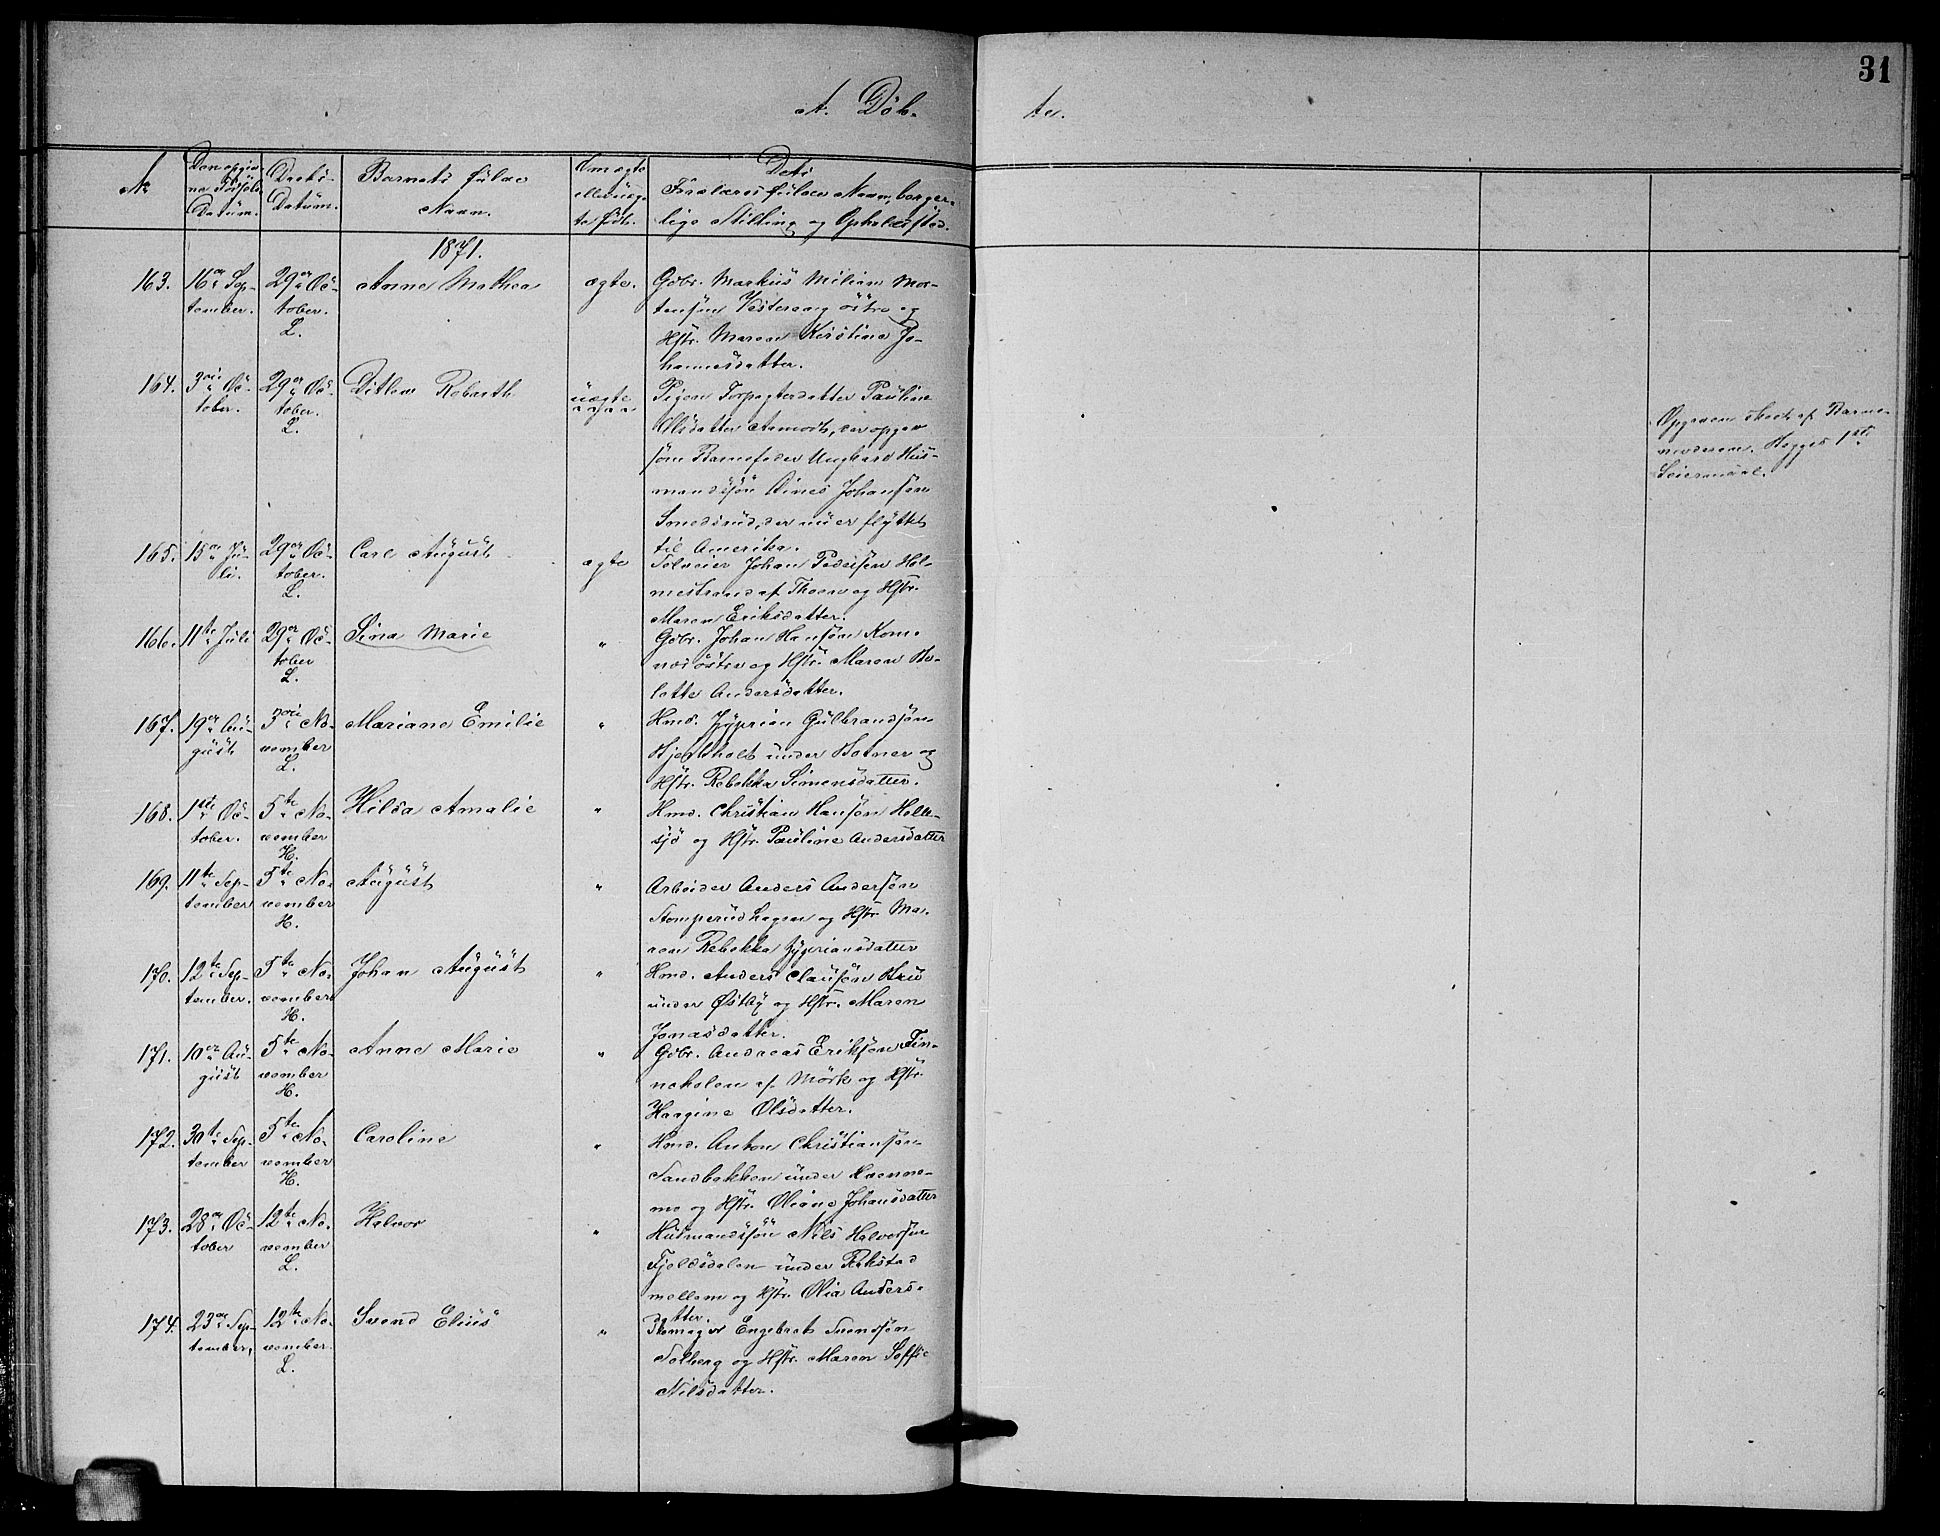 31
A. Döb-
ter.
№
Den opgiv-
ne Födsels-
Datum.
Daabs-
Datum.
Barnets fulde
Navn.
Om ægte
eller uæg-
te födt.
Dets
Forældres fulde Navn, borger-
lige Stilling og Opholdssted.
1871.
163. 16de Sep-
tember.
29de Oc-
tober.
L.
Anne Mathea
ægte.
Gdbr. Markus Milian Mor-
tensen Vestereng östre og
Hstr. Maren Kirstine Jo-
hannesdatter.
164. 3die Oc-
tober.
29de Oc-
tober.
L.
Ditlev Robarth
uægte
Pigen Forpagterdatter Pauline
Olsdatter Aamodt, der opgav
som Barnefader Ungkarl Hus-
mandssön Dines Johansen
Smedsrud, der nu er flyttet
til Amerika.
Opgaven skeet af Barne-
moderen. Begges 1ste
Leiermaal.
165. 15de Ju-
li.
29de Oc-
tober.
L.
Carl August
ægte
Selveier Johan Pedersen Hol-
mestrand af Thoen og Hstr.
Maren Eriksdatter.
166. 11te Juli
29de Oc-
tober
L.
Lina Marie
"
Gdbr. Johan Hansen Kom-
næs östre og Hstr. Maren Be-
lette Andersdatter.
167. 19de Au-
gust
3die No-
vember
L.
Mariane Emilie
"
Hmd. Zyprian Gulbrandsen
under Botner og
Hstr. Rebekka Simensdatter.
168. 1ste Oc-
tober.
5te No-
vember
H.
Hilda Amalie
"
Hmd. Christian Hansen Holte-
sjö og Hstr. Pauline Andersdatter
169. 11te Sep-
tember
5te No-
vember
H.
August
"
Arbeider Anders Andersen
Stomperudhagen og Hstr. Ma-
ren Rebekka Zypriansdatter
170. 12te Sep-
tember.
5te No-
vember
H.
Johan August
"
Hmd. Anders Clausen
under Østby og Hstr. Maren
Jonasdatter.
171. 10de Au-
gust
5te No-
vember
H.
Anne Marie
"
Gdbr. Andreas Eriksen Fin-
neholen af Mörk og Hstr.
Haagine Olsdatter.
172. 30te Sep-
tember
5te No-
vember
H.
Caroline
"
Hmd. Anton Christiansen
Sandbakken under Haenne-
mo og Hstr. Oliane Johansdatter
173. 28de Oc-
tober
12te No-
vember
L.
Halvor
"
Husmandssön Nils Halvorsen
Fjeldsdalen under Rakstad
mellem og Hstr. Olia Anders-
datter.
174. 23de Sep-
tember,
12te No-
vember.
L.
Svend Elius
"
Skomager Engebret Svendsen
Solberg og Hstr. Maren Soffie
Nilsdatter.